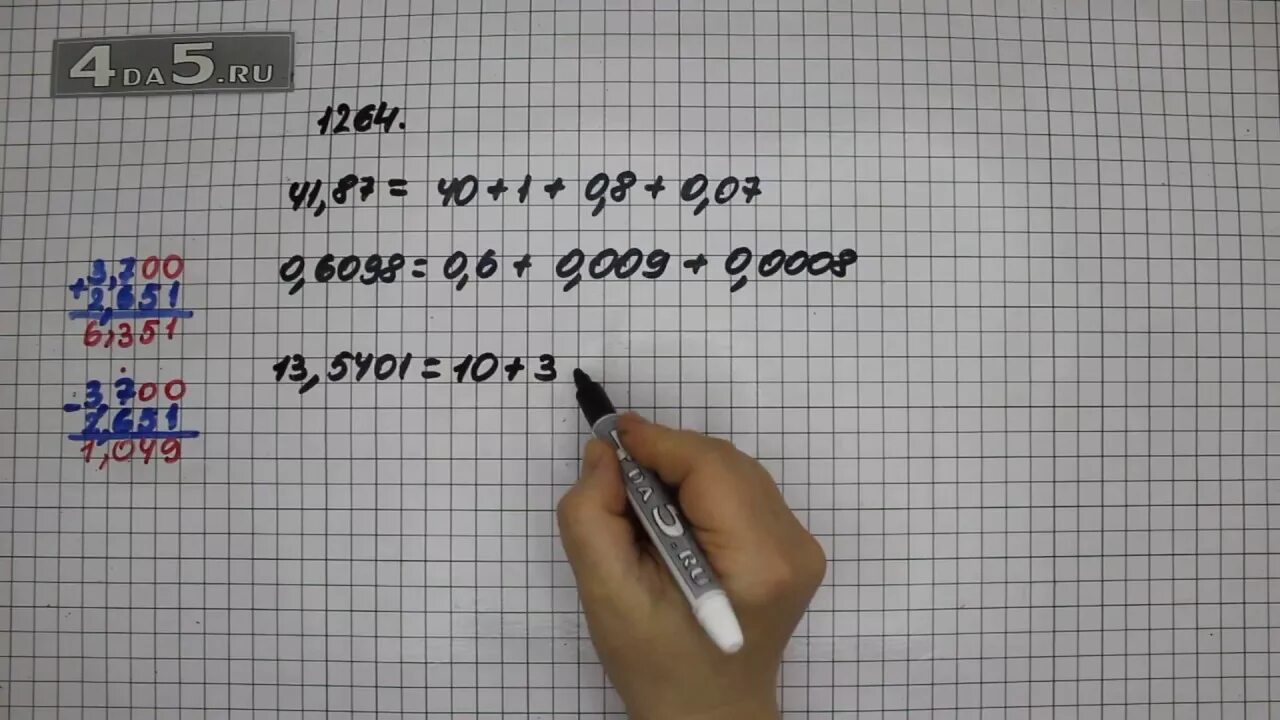 4DA5.RU
1264.
41,87 = 40 + 1 + 0,8 + 0,07
0,6098 = 0,6 + 0,009 + 0,0008
13,5401 = 10 + 3
+ 3,700
2,651
6,351
- 3,700
2,651
1,049
4DA5.RU